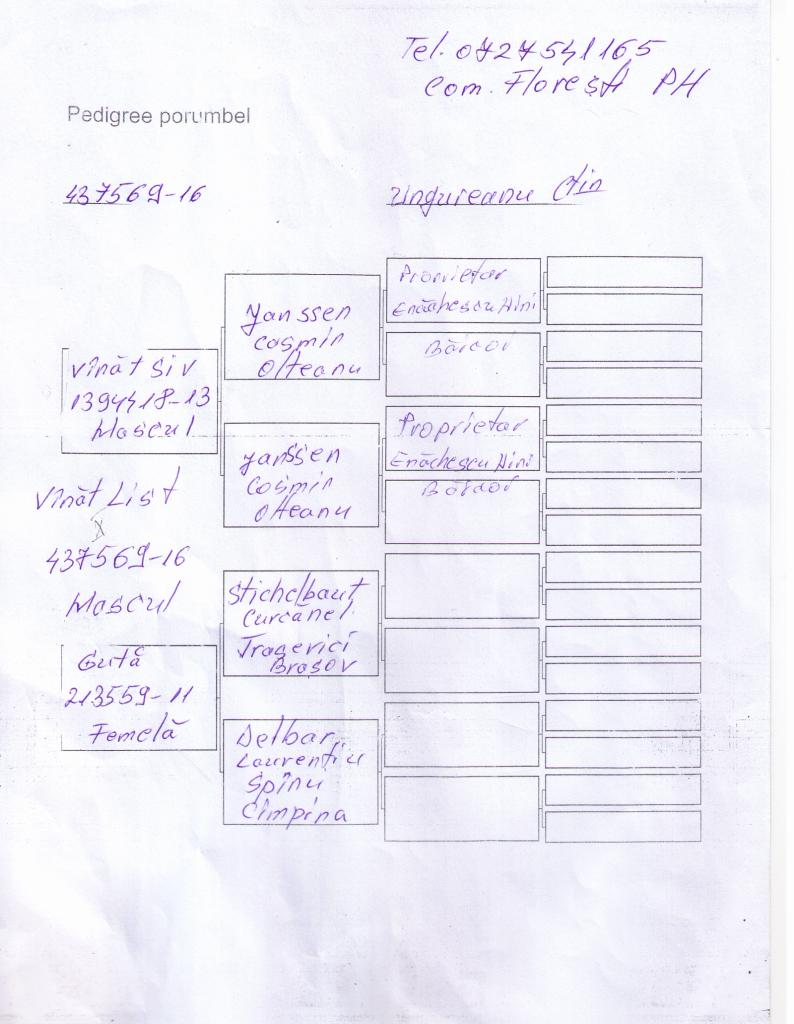 Tel. 0727541165
Com. Florești PH
Pedigree porumbel
437569-16
Ungureanu Ctin
Proprietar
Enăchescu Nini
Băicoi
Janssen
Cosmin
Olteanu
Vînăt Siv
1394418-13
Mascul
Proprietar
Enăchescu Nini
Băicoi
Janssen
Cosmin
Olteanu
Vînăt List
X
437569-16
Mascul
Stichelbaut
Curcănel
Brașov
Gută
213559-11
Femelă
Delbar
Laurențiu
Spînu
Cîmpina